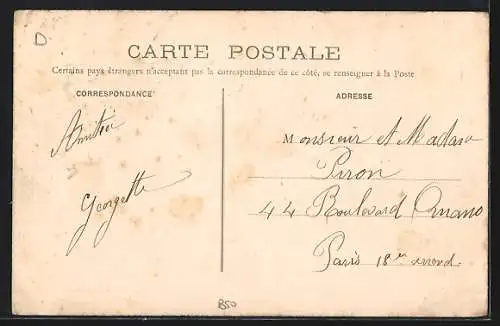 D
CARTE POSTALE
Certains pays étrangers n'acceptant pas la correspondance de ce côté, se renseigner à la Poste
CORRESPONDANCE
ADRESSE
Amitié
Georgette
Monsieur et Madame
Piron
44 Boulevard Ornano
Paris 18e arrond.
B50